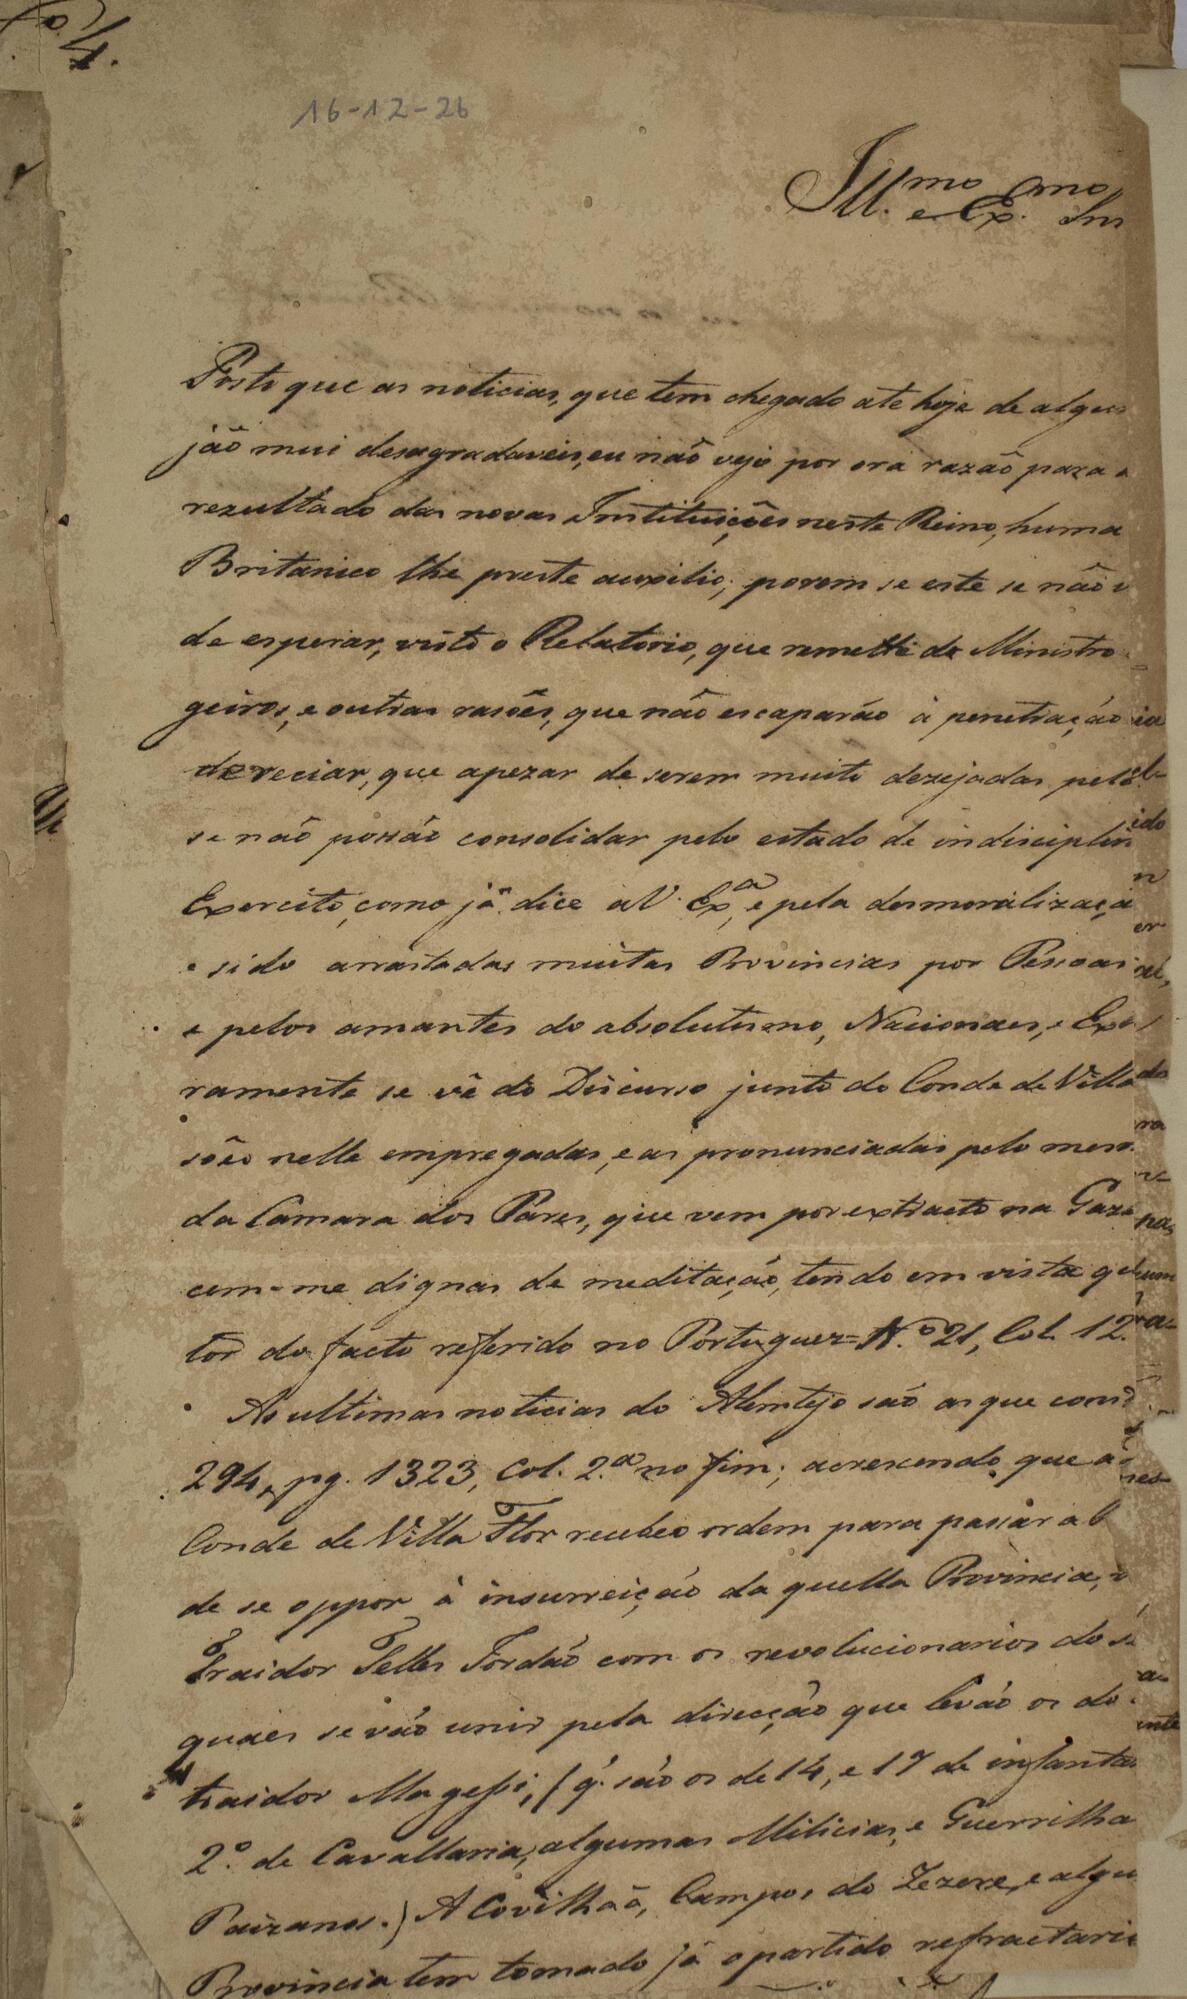 16-12-26
Ill.mo e Ex.mo Snr
Posto que as noticias, que tem chegado até hoje de algu
jão mui desagradaveis, eu não vejo por ora razão para
rezultado das novas Instituições neste Reino, huma
Britanico lhe preste auxilio; porem se este se não
de esperar, visto o Relatorio, que remetti do Ministro
geiros, e outras rasões, que não escaparão à penetração
receiar, que apezar de serem muito dezejadas pel
se não possão consolidar pelo estado de indisciplin
Exercito, como já dice a V. Ex.a, e pela desmoralizaçã
sido arrastadas muitas Provincias por Pessoas
e pelos amantes do absolutismo, Nacionaes, e Ex
ramente se vê do Discurso junto do Conde de Villa
sões nelle empregadas, e as pronunciadas pelo mesm
da Camara dos Pares, que vem por extracto na Gaze
cem-me dignas de meditação, tendo em vista q
tor do facto referido no Portuguez = N.º 21, Col. 12.
As ultimas noticias do Alemtejo são as que cons
294, pg. 1323, Col. 2.a no fim; acrescendo que
Conde de Villa Flor recebeo ordem para passar a
de se oppor à insurreição da quella Provincia,
traidor Telles Jordão com os revolucionarios do
quaes se vão unir pela direcção que levão os do
traidor Magessi, (q. são os de 14, e 17 de infanta
2.º de Cavallaria, algumas Milicias, e Guerrilha
Paizanos.) A Covilhãa, Campos do Zezere, e algu
Provincia tem tomado já o partido refractari